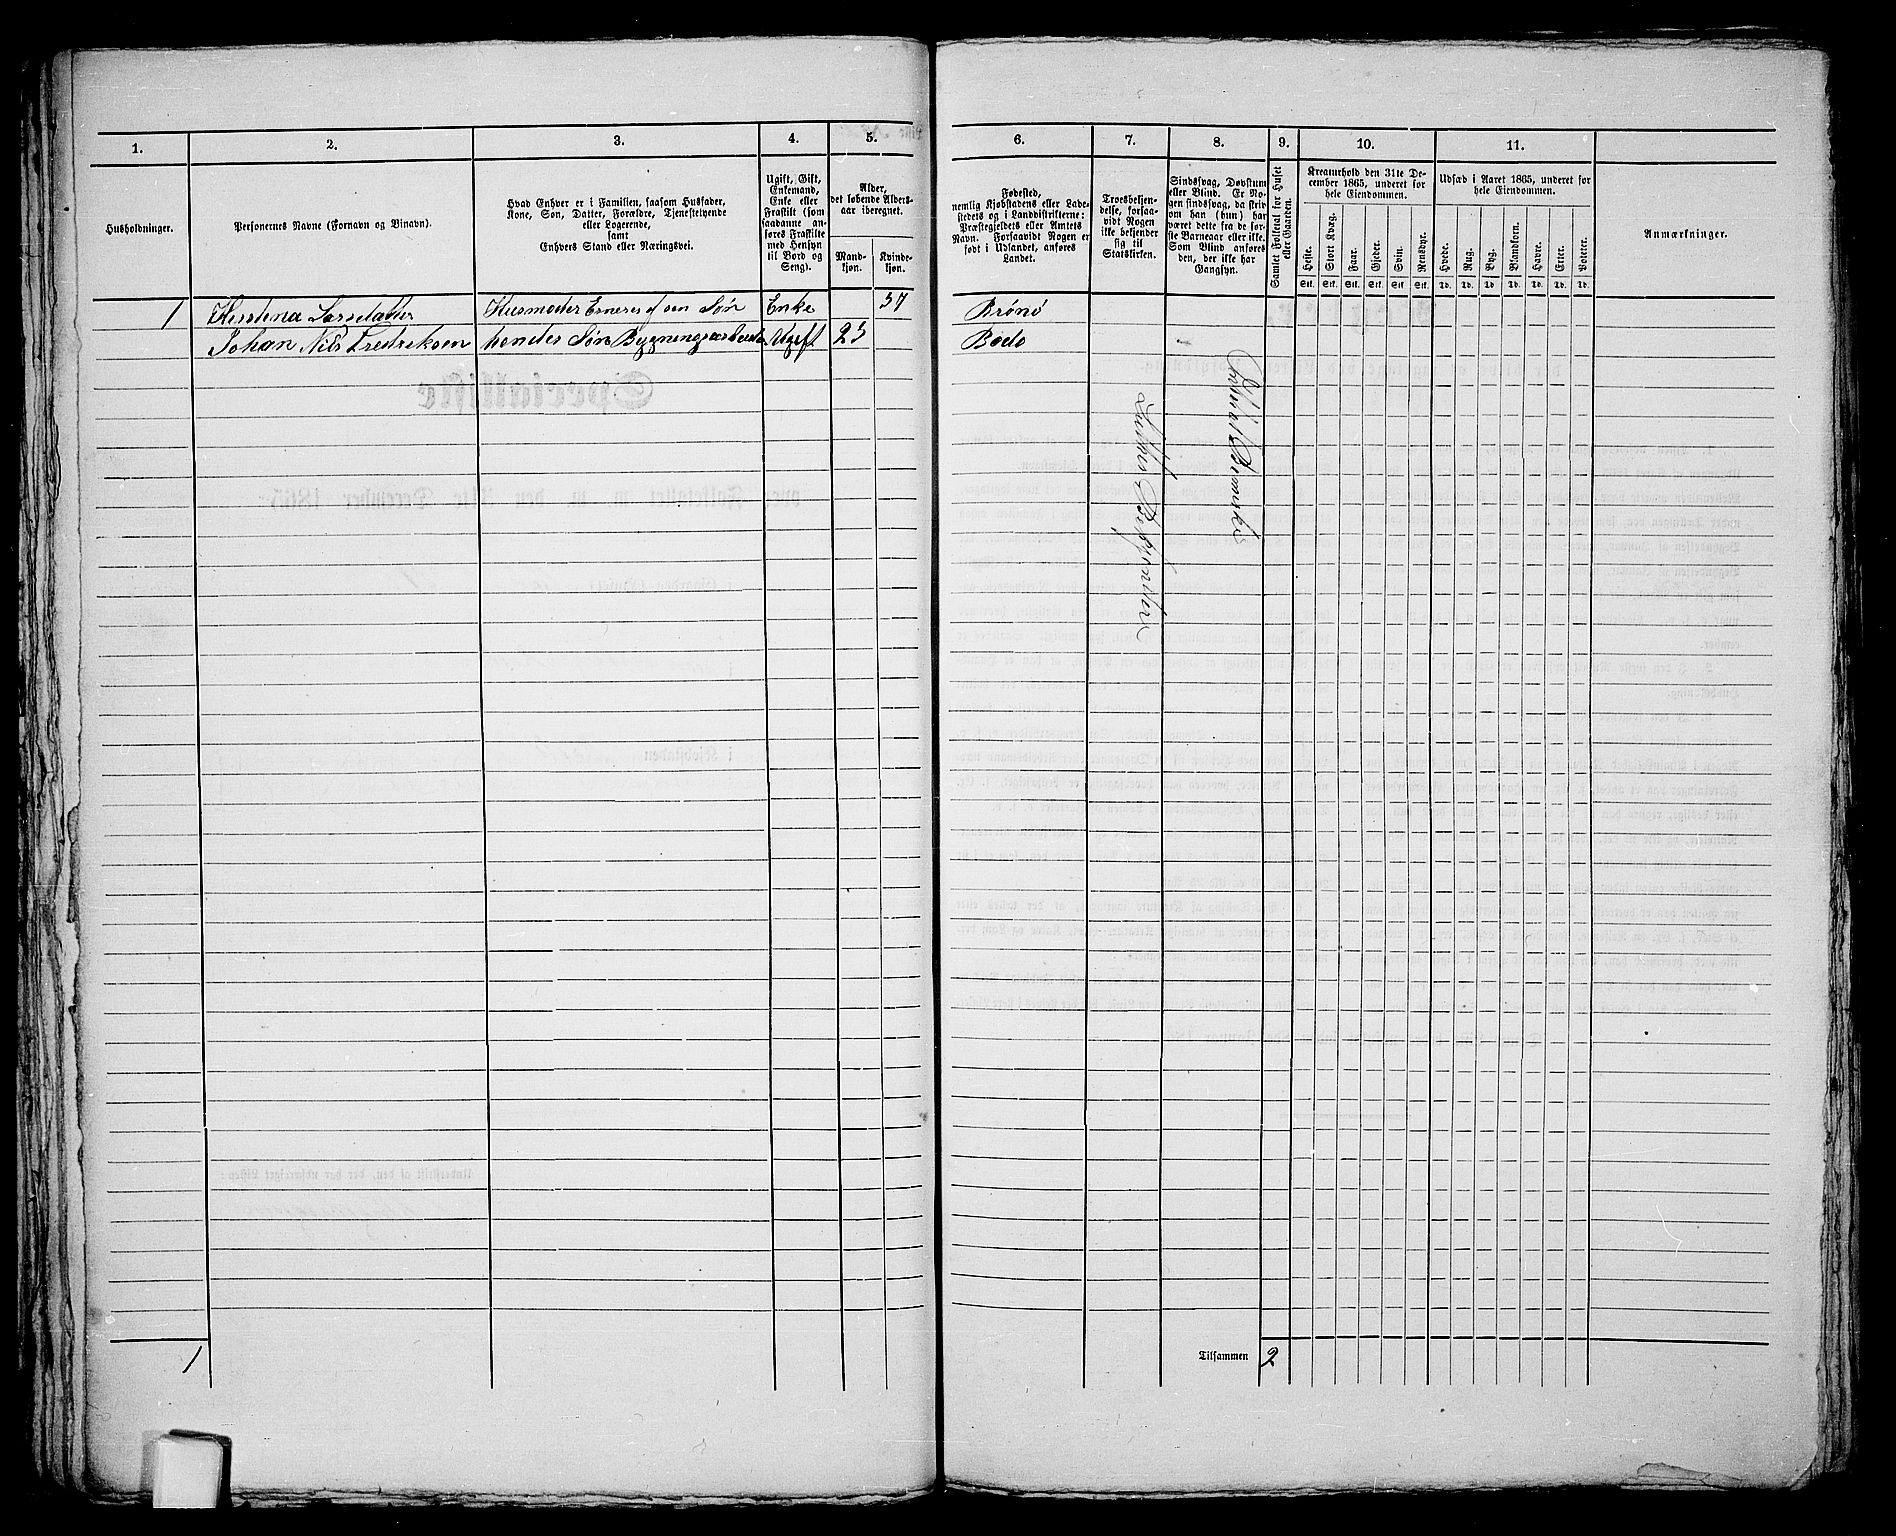 1. 2. 3. 4. 5. 6. 7. 8. 9. 10. 11.
Husholdninger.
Personernes Navne (Fornavn og Binavn).
Hvad Enhver er i Familien, saasom Husfader,
Kone, Søn, Datter, Forældre, Tjenestetyende
eller Logerende,
samt
Enhvers Stand eller Næringsvei.
Ugift, Gift,
Enkemand,
Enke eller
Fraskilt (som
saadanne an-
føres Fraskilte
med Hensyn
til Bord og
Seng).
Alder,
det løbende Alders-
aar iberegnet.
Mand-
kjøn.
Kvinde-
kjøn.
Fødested,
nemlig Kjøbstadens eller Lade-
stedets og i Landdistrikterne:
Præstegjeldets eller Amtets
Navn. Forsaavidt Nogen er
født i Udlandet, anføres
Landet.
Troesbekjen-
delse, forsaa-
vidt Nogen
ikke bekjender
sig til
Statskirken.
Sindssvag, Døvstum
eller Blind. Er No-
gen sindssvag, da skriv
om han (hun) har
været dette fra de før-
ste Barneaar eller ikke.
Som Blind anføres
den, der ikke har
Gangsyn.
Samlet Folketal for Huset
eller Gaarden.
Kreaturhold den 31te De-
cember 1865, underet for
hele Eiendommen.
Heste.
Stort Kvæg.
Faar.
Gjeder.
Svin.
Rensdyr.
Stk. Stk. Stk. Stk. Stk. Stk.
Udsæd i Aaret 1865, underet for
hele Eiendommen.
Hvede.
Rug.
Byg.
Blandkorn.
Havre.
Erter.
Poteter.
Td. Td. Td. Td. Td. Td. Td.
Anmærkninger.
1 Larsdatter Husmoder af sen Søn Enke 57 Brønø
Johan Nils Fredriksen hendes Søn Bygningsarbeider Ugift 23 Bodø
1
Tilsammen 2